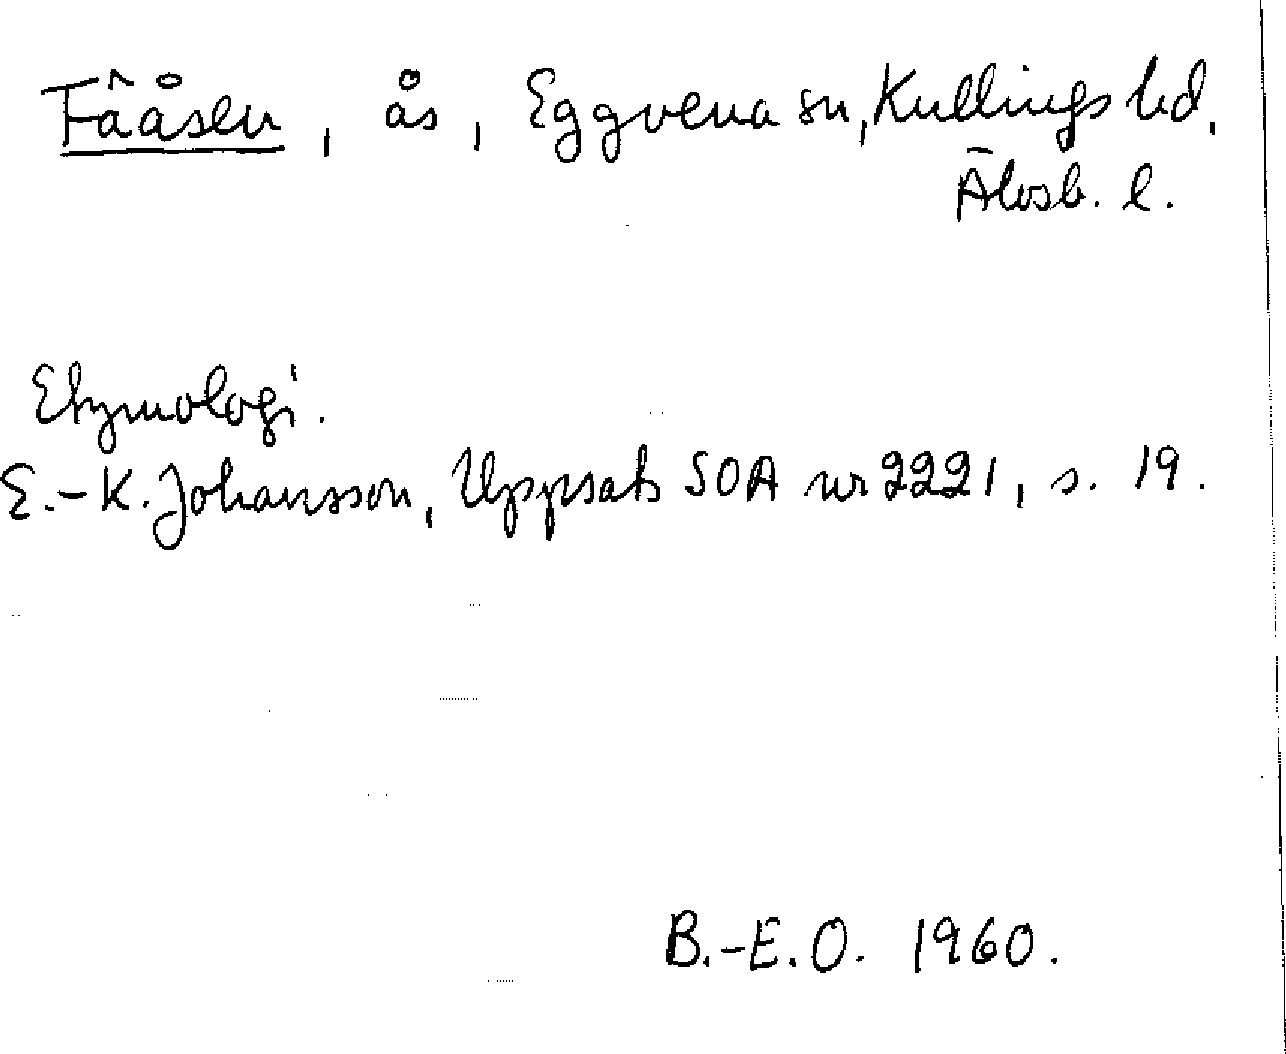 Fâåsen, ås, Eggvena sn, Kullings hd,
Älvsb. l.
Etymologi.
E.-K. Johansson, Uppsats SOA nr 2221, s. 19.
B.-E.O. 1960.